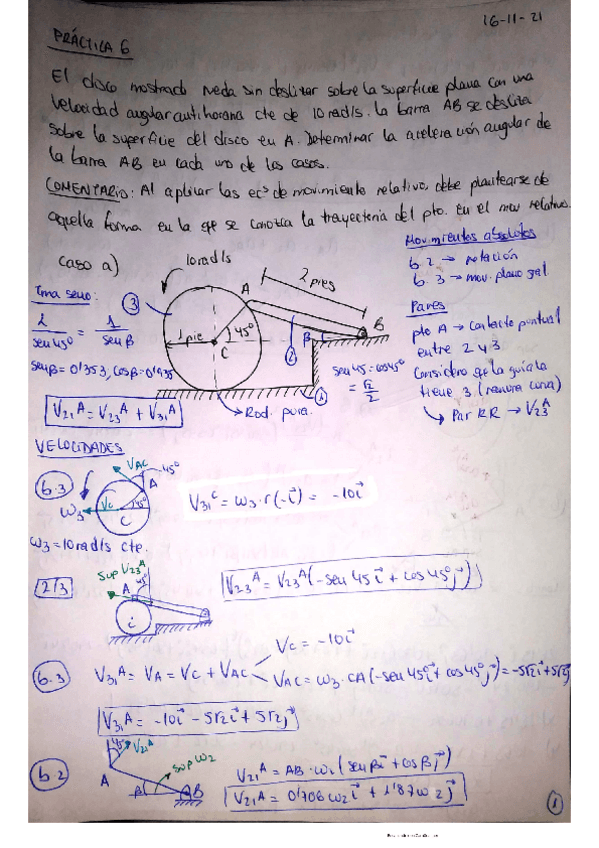 16-11-21
PRÁCTICA 6
El disco mostrado rueda sin deslizar sobre la superficie plana con una
velocidad angular antihoraria cte de 10 rad/s. La barra AB se desliza
sobre la superficie del disco en A. Determinar la aceleración angular de
la barra AB en cada uno de los casos.
COMENTARIO: Al aplicar las ecs de movimiento relativo, debe plantearse de
aquella forma en la que se conozca la trayectoria del pto. en el mov relativo.
caso a)
10 rad/s
Movimientos absolutos
6.2 → rotación
6.3 → mov. plano gral.
Pares
pto A → contacto puntual
entre 2 y 3
Considero que la guía la
tiene 3 (ranura curva)
↳ Par RR → V23^A
Tma seno:
2/sen45º = 1/senβ
senβ = 0'353, cosβ = 0'935
V21^A = V23^A + V31^A
3
A
2 pies
B
1 pie
45º
C
β
2
1
Rod. pura.
sen45 = cos45º
= √2/2
VELOCIDADES
6.3
VAC
45º
A
ω3
Vc
45º
C
V31^C = ω3·r(-i) = -10i
ω3 = 10 rad/s cte.
2/3
Sup V23^A
A
45º
V23^A = V23^A(-sen 45 i + cos 45º j)
6.3
V31^A = VA = VC + VAC
VC = -10i
VAC = ω3·CA(-sen45º i + cos 45º j) = -5√2i + 5√2j
V31^A = -10i - 5√2i + 5√2j
6.2
V21^A
A
β
sup ω2
B
V21^A = AB·ω2(senβi + cosβj)
V21^A = 0'706ω2 i + 1'87ω2 j
1